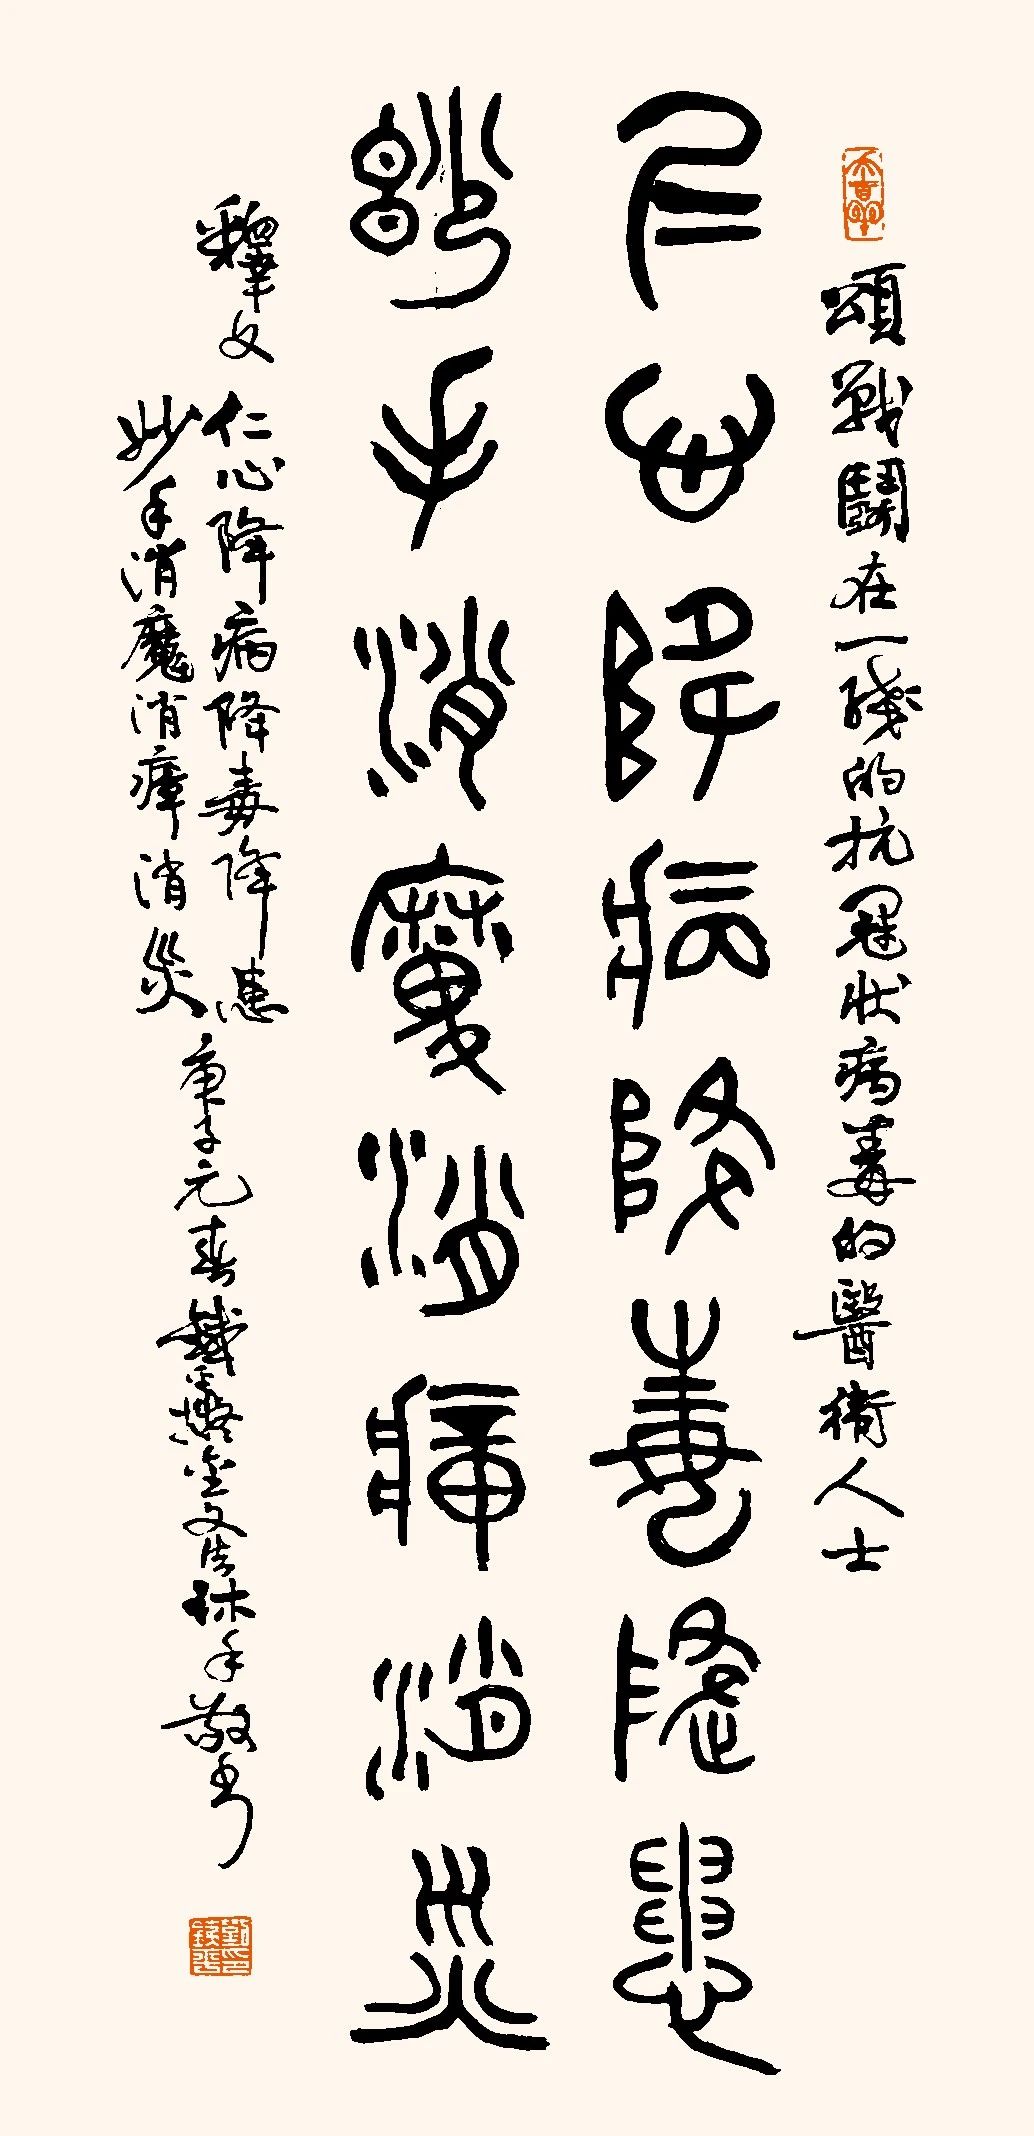 頌戰鬪在一綫的抗冠狀病毒的醫術人士
仁心降病降毒降患
妙手消魔消瘴消災
釋文
仁心降病降毒降患
妙手消魔消瘴消災
庚子元春鐵金文法沐手敬書